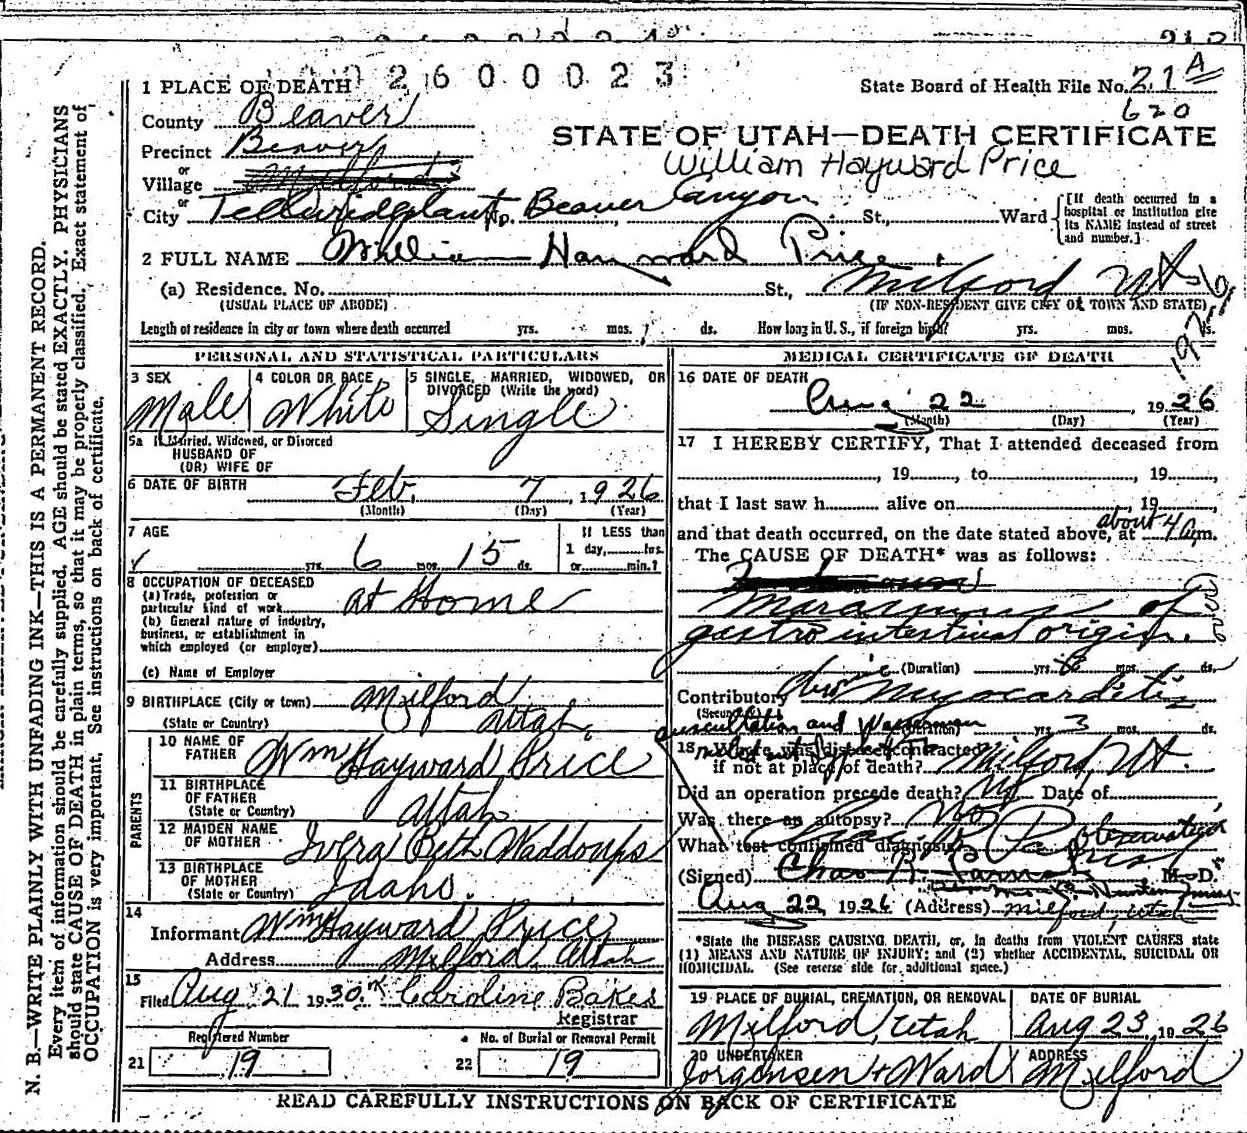 2600023
1 PLACE OF DEATH
State Board of Health File No. 21 A
620
County Beaver
STATE OF UTAH—DEATH CERTIFICATE
Precinct Beaver
William Hayward Price
or
Village
or
City Beaver Canyon St, Ward
[If death occurred in a hospital or institution give its NAME instead of street and number.]
2 FULL NAME William Hayward Price
(a) Residence. No. St., Milford Ut
(USUAL PLACE OF ABODE) (IF NON-RESIDENT GIVE CITY OR TOWN AND STATE)
Length of residence in city or town where death occurred yrs. mos. ds. How long in U. S., if foreign birth? yrs. mos. ds.
N. B.—WRITE PLAINLY WITH UNFADING INK—THIS IS A PERMANENT RECORD.
Every item of information should be carefully supplied. AGE should be stated EXACTLY. PHYSICIANS
should state CAUSE OF DEATH in plain terms, so that it may be properly classified. Exact statement of
OCCUPATION is very important. See instructions on back of certificate.
PERSONAL AND STATISTICAL PARTICULARS
3 SEX
Male
4 COLOR OR RACE
White
5 SINGLE, MARRIED, WIDOWED, OR
DIVORCED (Write the word)
Single
5a If Married, Widowed, or Divorced
HUSBAND OF
(OR) WIFE OF
6 DATE OF BIRTH Feb. 7, 1926
(Month) (Day) (Year)
7 AGE
yrs. 6 mos. 15 ds.
If LESS than
1 day, hrs.
or min.?
8 OCCUPATION OF DECEASED
(a) Trade, profession or
particular kind of work at Home
(b) General nature of industry,
business, or establishment in
which employed (or employer)
(c) Name of Employer
9 BIRTHPLACE (City or town) Milford
(State or Country) Utah
PARENTS
10 NAME OF
FATHER Wm Hayward Price
11 BIRTHPLACE
OF FATHER
(State or Country) Utah
12 MAIDEN NAME
OF MOTHER Ivera Beth Waddoups
13 BIRTHPLACE
OF MOTHER
(State or Country) Idaho.
14
Informant Wm Hayward Price
Address Milford, Utah
15
Filed Aug 21 1930. Caroline Bakes
Registrar
Registered Number
21 19
No. of Burial or Removal Permit
22 19
MEDICAL CERTIFICATE OF DEATH
16 DATE OF DEATH
Aug 22, 1926
(Month) (Day) (Year)
17 I HEREBY CERTIFY, That I attended deceased from
, 19 , to , 19 ,
that I last saw h alive on , 19 ,
and that death occurred, on the date stated above, at about 4 a.m.
The CAUSE OF DEATH* was as follows:
Marasmus of
gastro intestinal origin.
(Duration) yrs. mos. ds.
Contributory Chronic Myocarditis
(Secondary)
auscultation and Wasserman
(Duration) yrs. 3 mos. ds.
18 Where was disease contracted
if not at place of death? Milford Ut.
Did an operation precede death? No Date of
Was there an autopsy? No
What test confirmed diagnosis? Observation
(Signed) M. D.
Aug 22 1926 (Address) Milford, Utah
*State the DISEASE CAUSING DEATH, or, in deaths from VIOLENT CAUSES state
(1) MEANS AND NATURE OF INJURY; and (2) whether ACCIDENTAL, SUICIDAL OR
HOMICIDAL. (See reverse side for additional space.)
19 PLACE OF BURIAL, CREMATION, OR REMOVAL
Milford, Utah
DATE OF BURIAL
Aug 23, 1926
20 UNDERTAKER
Jorgensen + Ward
ADDRESS
Milford
READ CAREFULLY INSTRUCTIONS ON BACK OF CERTIFICATE